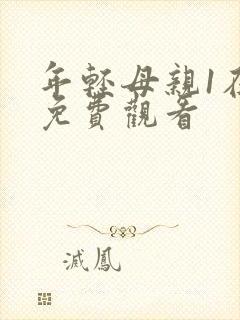 年輕母親1在
免費觀看
滅鳳